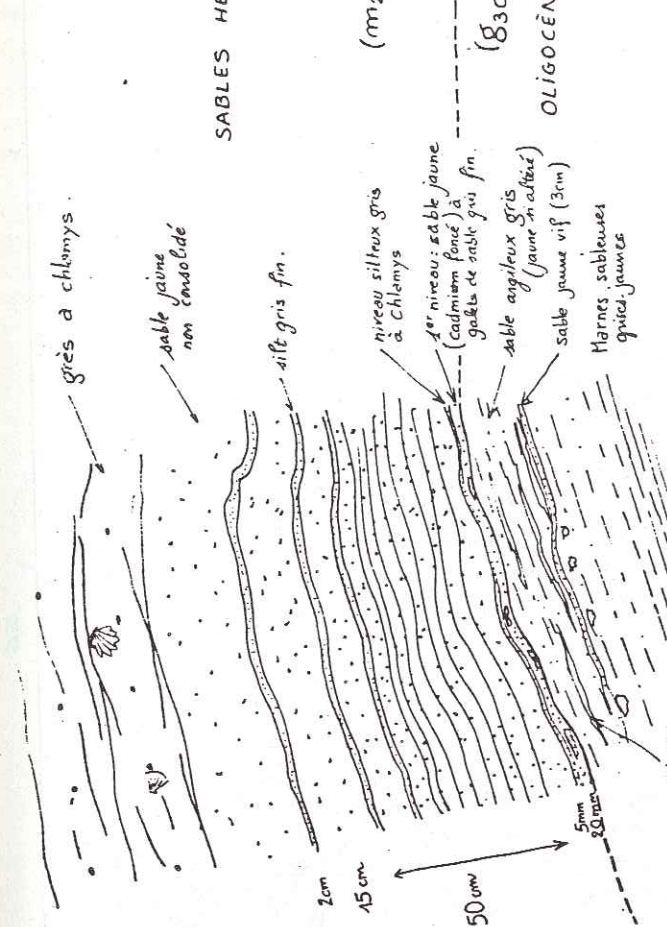 grès à chlamys.
sable jaune
non consolidé
SABLES HE
silt gris fin.
niveau silteux gris
à Chlamys
(m2
1er niveau: sable jaune
(cadmium foncé) à
galets de sable gris fin.
(g3c
OLIGOCÈN
sable argileux gris
(jaune si altéré)
sable jaune vif (3cm)
Marnes sableuses
grises-jaunes
2cm
15 cm
50 cm
5mm
20mm